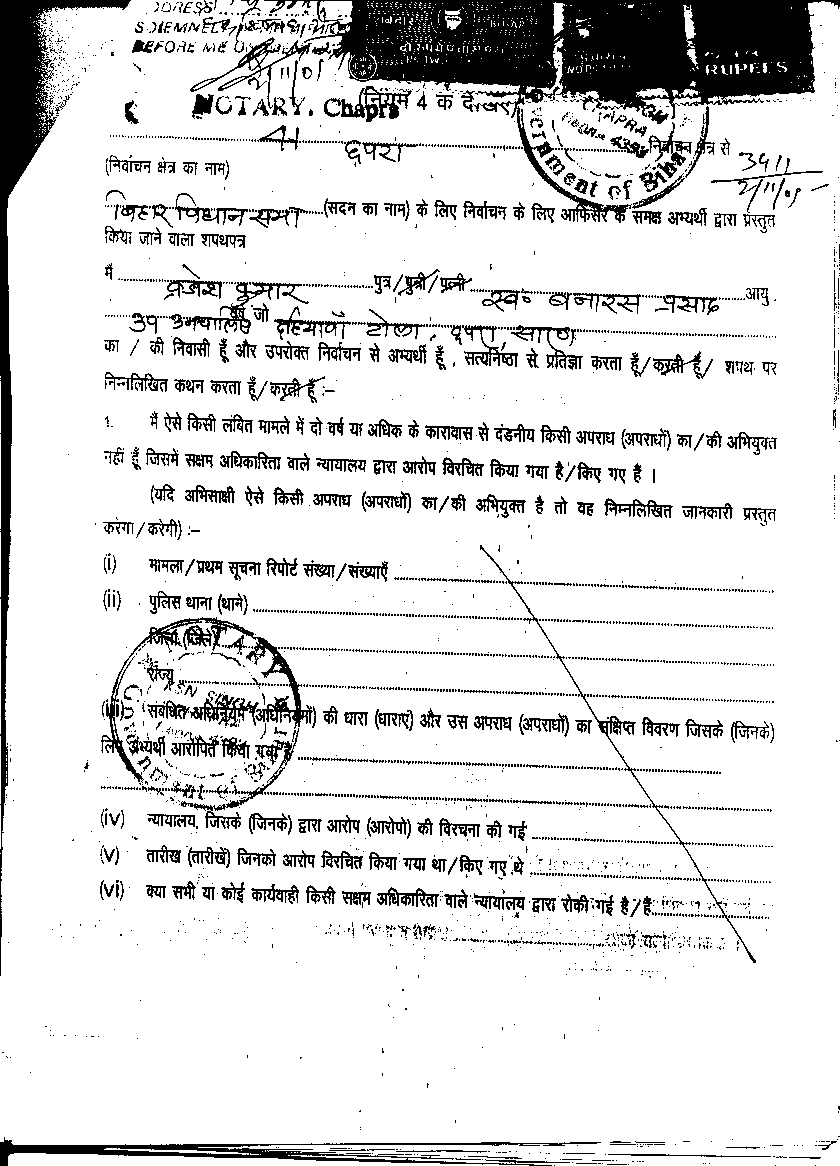 SOLEMNELY
BEFORE ME ON
2/11/05
NOTARY, Chapra (नियम 4 के देखिए)
RUPEES
41 छपरा निर्वाचन क्षेत्र से
(निर्वाचन क्षेत्र का नाम)
3911
2/11/05
Government of Bihar
बिहार विधान सभा (सदन का नाम) के लिए निर्वाचन के लिए आफिसर के समक्ष अभ्यर्थी द्वारा प्रस्तुत
किया जाने वाला शपथपत्र
मैं ब्रजेश कुमार पुत्र/पुत्री/पत्नी स्व० बनारस प्रसाद आयु
39 उनचालिस वर्ष जो दहियावाँ टोला, छपरा, सारण
का / की निवासी हूँ और उपरोक्त निर्वाचन से अभ्यर्थी हूँ , सत्यनिष्ठा से प्रतिज्ञा करता हूँ/करती हूँ/ शपथ पर
निम्नलिखित कथन करता हूँ/करती हूँ :–
1. मैं ऐसे किसी लंबित मामले में दो वर्ष या अधिक के कारावास से दंडनीय किसी अपराध (अपराधों) का/की अभियुक्त
नहीं हूँ जिसमें सक्षम अधिकारिता वाले न्यायालय द्वारा आरोप विरचित किया गया है/किए गए हैं ।
(यदि अभिसाक्षी ऐसे किसी अपराध (अपराधों) का/की अभियुक्त है तो वह निम्नलिखित जानकारी प्रस्तुत
करेगा/करेगी) :–
(i) मामला/प्रथम सूचना रिपोर्ट संख्या/संख्याएँ
(ii) पुलिस थाना (थाने)
जिला (जिले)
राज्य
(iii) संबंधित अधिनियम (अधिनियमों) की धारा (धाराएं) और उस अपराध (अपराधों) का संक्षिप्त विवरण जिसके (जिनके)
लिए अभ्यर्थी आरोपित किया गया है
NOTARY
KSN SINGH
Government of Bihar
(iv) न्यायालय, जिसके (जिनके) द्वारा आरोप (आरोपो) की विरचना की गई
(v) तारीख (तारीखें) जिनको आरोप विरचित किया गया था/किए गए थे
(vi) क्या सभी या कोई कार्यवाही किसी सक्षम अधिकारिता वाले न्यायालय द्वारा रोकी गई है/हैं